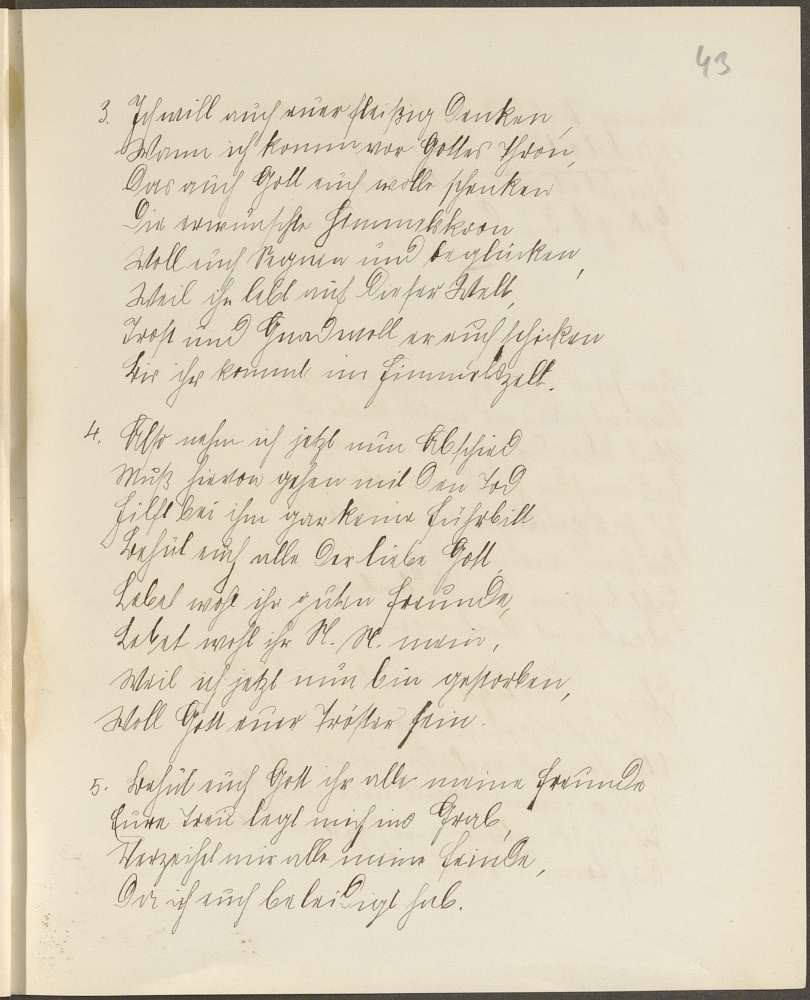 43
3. Ich will auch euer fleißig Denken,
Wann ich komm vor Gottes Thron,
Das auch Gott euch wolle schenken
Die erwünschte Himmelskron
Woll euch Segnen und beglücken,
Weil ihr lebt auf Dieser Welt,
Trost und Gnad woll er euch schicken
Bis ihr kommt ins Himmelszelt.
4. Also nehm ich jetzt nun Abschied
Muß hievon gehen mit Den Tod
Hilft bei ihm gar keine Führbitt
Behüt euch alle Der liebe Gott,
Lebet wohl ihr guten Freunde,
Lebet wohl ihr N. N. mein,
Weil ich jetzt nun bin gestorben,
Woll Gott euer Tröster sein.
5. Behüt euch Gott ihr alle meine Freunde
Eure Treu legt mich ins Grab,
Verzeihet mir alle meine Feinde,
Da ich euch beleidigt hab.